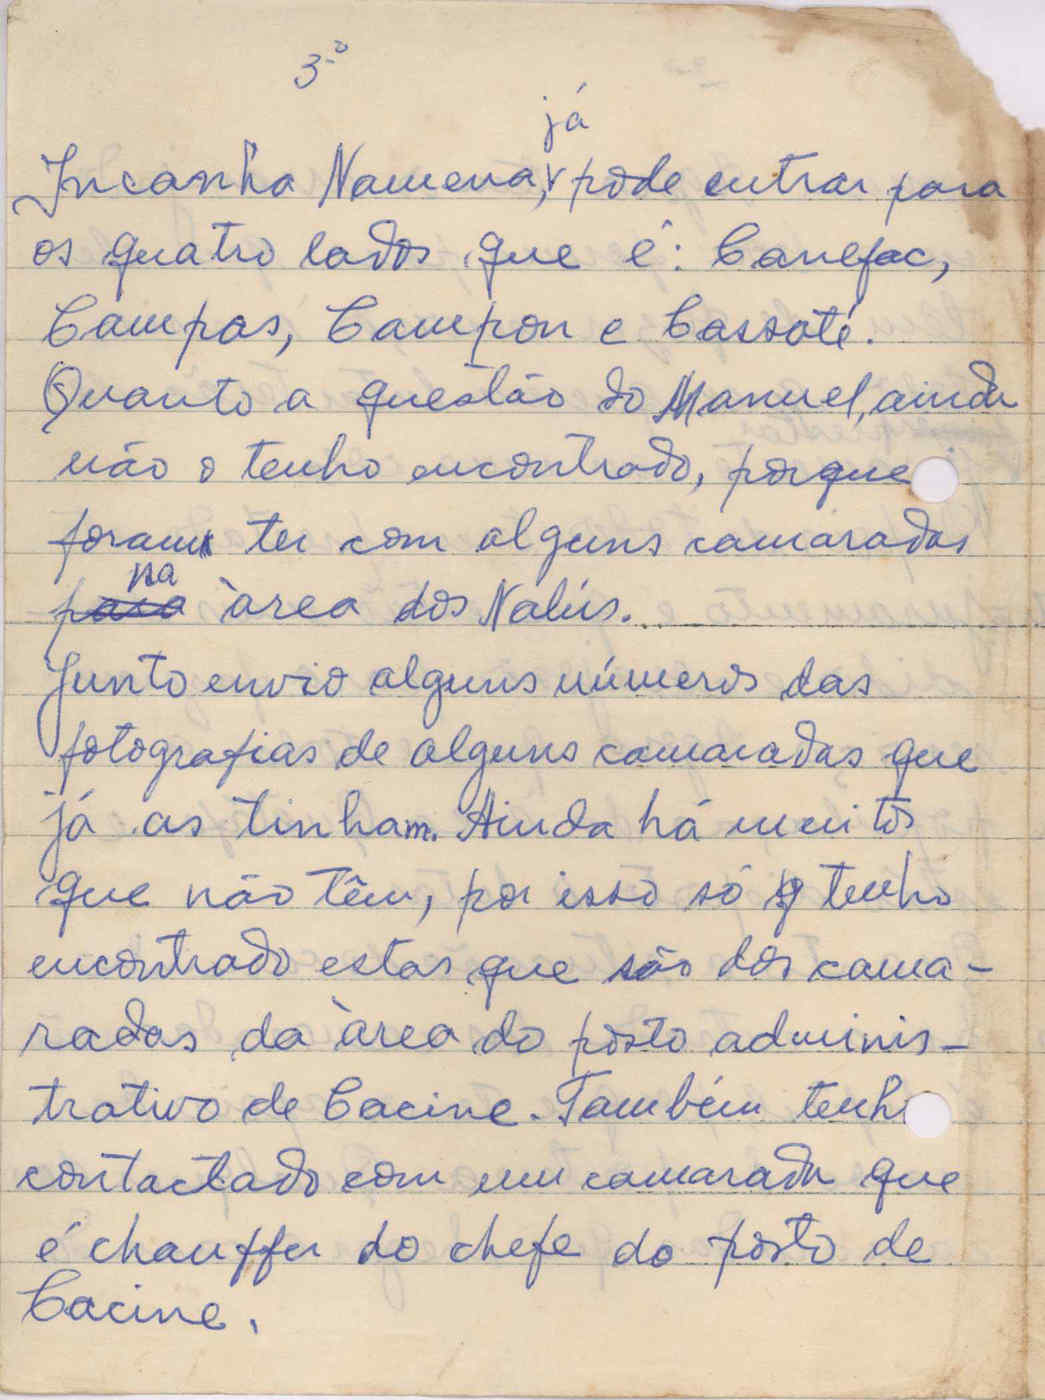 3.º
já
Incanha Namena, pode entrar para
os quatro lados que é: Canefac,
Campas, Campon e Cassaté.
Quanto a questão do Manuel, ainda
não o tenho encontrado, porque
foram ter com alguns camaradas
na
para àrea dos Nalús.
Junto envio alguns números das
fotografias de alguns camaradas que
já as tinham. Ainda há muitos
que não têm, por isso só tenho
encontrado estas que são dos cama-
radas da àrea do posto adminis-
trativo de Cacine. Também tenho
contactado com um camarada que
é chauffer do chefe do posto de
Cacine.